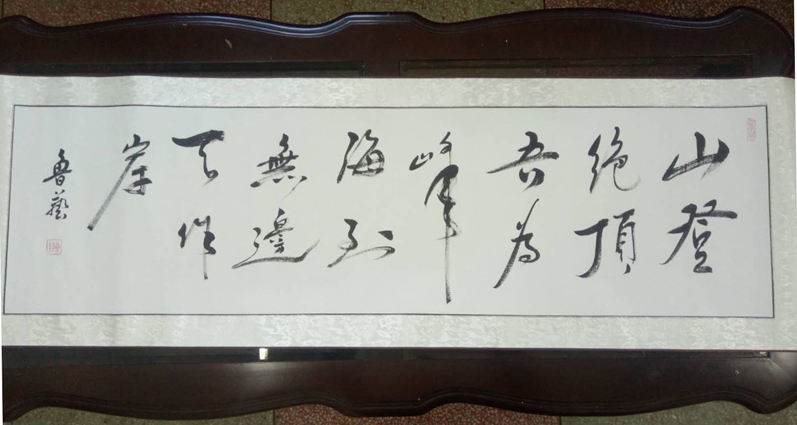 山登
絕頂
吾為
峰
海到
無邊
天作
岸
魯藝